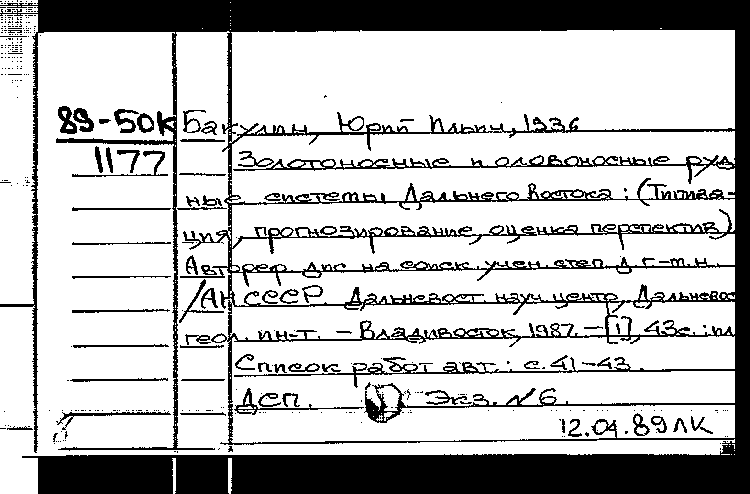 89-50К Бакулин, Юрий Ильич, 1936
1177 Золотоносные и оловоносные руд
ные системы Дальнего Востока : (Типиза-
ция, прогнозирование, оценка перспектив)
Автореф. дис на соиск. учен. степ. д г.-м.н.
/АН СССР. Дальневост науч. центр, Дальневос
геол. ин-т. – Владивосток, 1987. – [1], 43с. : ил
Список работ авт. : с. 41-43.
ДСП. Экз. №6.
12.04.89 ЛК